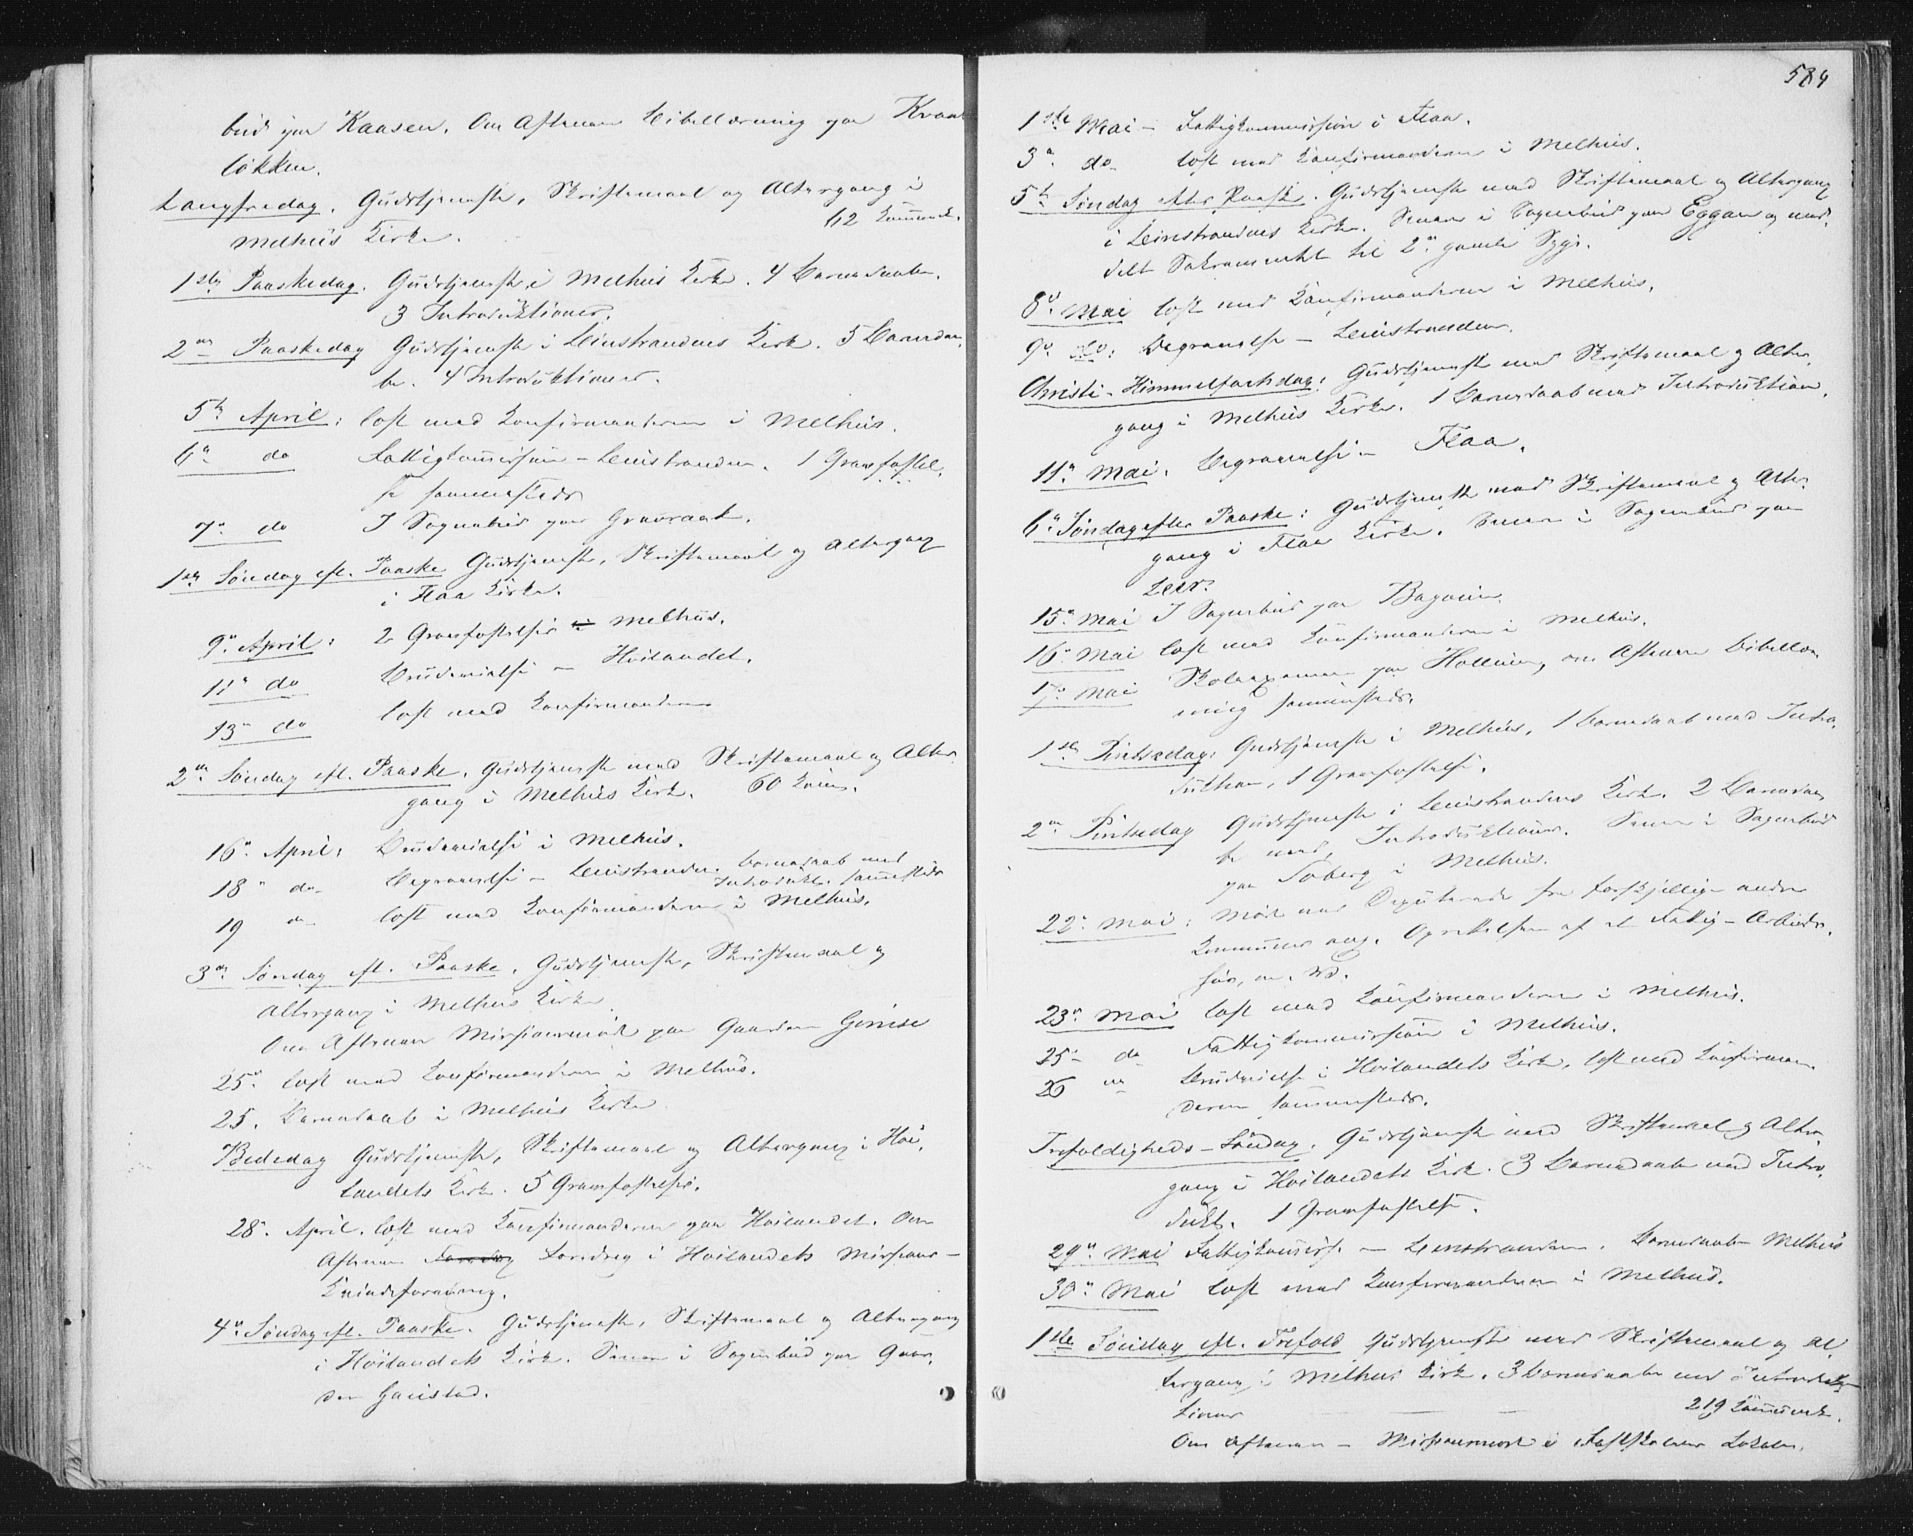 bud paa Kaasen. Om Aftenen Bibellæsning paa Kraa
løkken.
Langfredag. Gudstjeneste, Skriftemaal og Altergang i
Melhus Kirke. 62 Kommunik.
1ste Paaskedag. Gudstjeneste i Melhus Kirke. 4 Barnedaabe.
3 Introduktioner.
2den Paaskedag Gudstjeneste i Leinstrandens Kirke. 5 Barnedaa,
be. 4 Introduktioner.
5te April: læst med Konfirmanderne i Melhus.
6te do Fattigkommission – Leinstranden. 1 Gravfæstel,
se sammesteds
7de do I Sognebud paa Gravraak.
1ste Søndag eft. Paaske Gudstjeneste, Skriftemaal og Altergang
i Flaa Kirke.
9de April: 2 Gravfæstelser i Melhus.
11te do Brudevielse – Høilandet.
13de do læst med Konfirmanderne
2den Søndag eft. Paaske. Gudstjeneste med Skriftemaal og Alter,
gang i Melhus Kirke. 60 Kom.
16de April: Brudevielse i Melhus.
18de do Begravelse – Leinstranden. Barnedaab med
Introdukt. sammesteds
19 do læst med Konfirmanderne i Melhus.
3die Søndag eft. Paaske. Gudstjeneste, Skriftemaal og
Altergang i Melhus Kirke
Om Aftenen Missionsmøde paa Gaarden Gimse
25de læst med Konfirmanderne i Melhus.
25. Barnedaab i Melhus Kirke
Bededag Gudstjeneste, Skriftemaal og Altergang i Høi,
landets Kirke. 5 Gravfæstelser.
28de April. læst med Konfirmanderne paa Høilandet. Om
Aftenen Foredrag Foredrag i Høilandets Missions-
Kvindeforening.
4de Søndag eft. Paaske. Gudstjeneste, Skriftemaal og Altergang
i Høilandets Kirke. Senere i Sognebud paa Gaar,
den
584
1ste Mai – Fattigkommission i Flaa.
3de do læst med Konfirmanderne i Melhus.
5te Søndag efter Paaske. Gudstjeneste med Skriftemaal og Altergang
i Leinstrandens Kirke. Senere i Sognebud paa Eggan og med,
delt Sakramentet til 2de gamle Syge.
8de Mai læst med Konfirmanderne i Melhus.
9de do: Begravelse – Leinstranden.
Christi-Himmelfartsdag: Gudstjeneste med Skriftemaal og Alter,
gang i Melhus Kirke. 1 Barnedaab med Introduktion.
11te Mai. Begravelse – Flaa.
6te Søndag efter Paaske: Gudstjeneste med Skriftemaal og Alter,
gang i Flaa Kirke. Senere i Sognebud paa
Leer.
15de Mai I Sognebud paa
16de Mai læst med Konfirmanderne i Melhus.
17de Mai Skoleexamen paa Hollum, om Aftenen Bibellæs,
ning sammesteds.
1ste Pintsedag: Gudstjeneste i Melhus, 1 Barnedaab med Intro,
duktion, 1 Gravfæstelse.
2den Pintsedag Gudstjeneste i Leinstrandens Kirke. 2 Barnedaa,
be med, Introduktioner. Senere i Sognebud
paa Søberg i Melhus.
22de Mai: Møde med Deputerede fra forskjellige andre
Kommuner ang. Oprettelsen af et Fattig-Arbeids,
hus, m. Vd.
23de Mai læst med Konfirmanderne i Melhus.
25de do Fattigkommission i Melhus.
26 do Brudevielse i Høilandets Kirke, læst med Konfirman,
derne sammesteds.
Trefoldigheds-Søndag. Gudstjeneste med Skriftemaal og Alter,
gang i Høilandets Kirke. 3 Barnedaabe med Intro,
dukt. 1 Gravfæstelse.
29de Mai Fattigkommiss. – Leinstranden. Barnedaab Melhus
30de Mai læst med Konfirmanderne i Melhus.
1ste Søndag eft. Trefold Gudstjeneste med Skriftemaal og Al,
tergang i Melhus Kirke. 3 Barnedaabe med Introduk-
tioner 219 Kommunik.
Om Aftenen – Missionsmøde i Fastskolens Lokale.